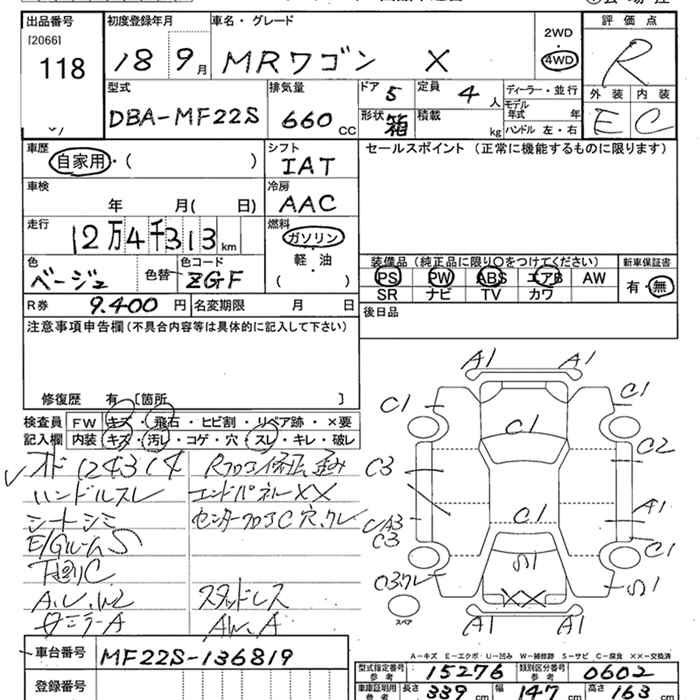 出品番号
[2066]
118
初度登録年月
18 9月
車名・グレード
MRワゴン X
2WD
4WD
評価点
R
外装 内装
E C
型式
DBA-MF22S
排気量
660 CC
ドア 5
形状 箱
定員 4 人
積載 kg
ディーラー・並行
モデル年式 年
ハンドル 左・右
車歴
自家用・( )
シフト
IAT
セールスポイント (正常に機能するものに限ります)
車検
年 月( 日)
冷房
AAC
走行
12万4千313km
燃料
ガソリン
軽・油
( )
色
ベージュ
色替
色コード
ZGF
装備品 (純正品に限り○をつけてください)
PS PW ABS エアB AW
SR ナビ TV カワ
新車保証書
有・無
R券 9.400円
名変期限 月 日
後日品
注意事項申告欄(不具合内容等は具体的に記入して下さい)
修復歴 有 [箇所 ]
検査員記入欄
FW キズ・飛石・ヒビ割・リペア跡・×要
内装 キズ・汚レ・コゲ・穴・スレ・キレ・破レ
オド 124314
ハンドルスレ
シートシミ
E/GルームS
下廻りC
A.U.W2
ミラーA
Rフロア修正歪み
エンドパネルXX
センターフロアC穴.クレ
スタッドレス
AW.A
A1 A1
C1 C1
C1
C2
C3
A1
C1
C3
C1
S1
S1
XX
A1 A1
スペア
A-キズ E-エクボ U-凹み W-補修跡 S-サビ C-腐食 XX-交換済
車台番号
MF22S-136819
登録番号
型式指定番号 参考 15276
類別区分番号 参考 0602
車庫証明用 参考 長さ 339 cm 幅 147 cm 高さ 163 cm